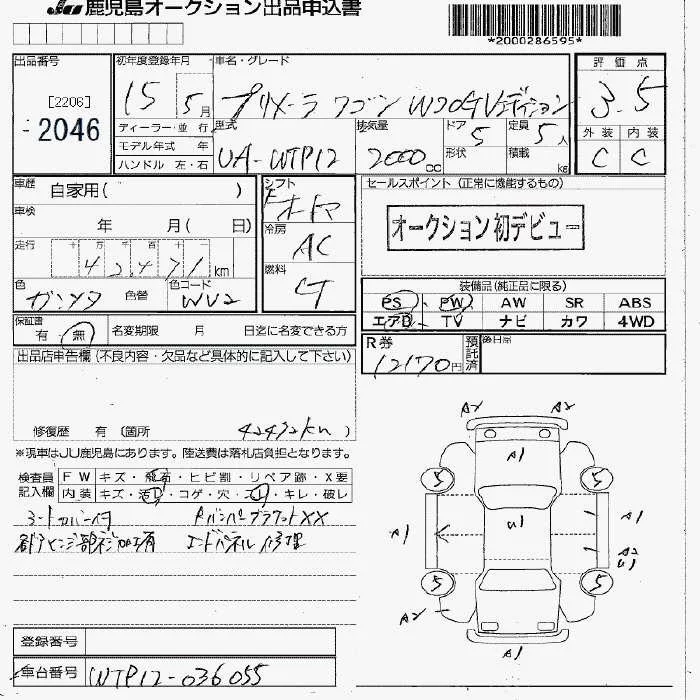 鹿児島オークション出品申込書
*2000286595*
出品番号
[2206]
2046
初年度登録年月
15 5月
車名・グレード
プリメーラ ワゴン W20G Vエディション
評価点
3.5
外装 内装
C C
ディーラー・並行
モデル年式 年
ハンドル 左・右
型式
UA-WTP12
排気量
2000 CC
ドア
5
形状
定員
5人
積載
kg
車歴
自家用( )
車検
年 月( 日)
走行
十 万 千 百 十 一
42,471 km
色
ガンメタ
色替
色コード
WV2
シフト
F オートマ
冷房
AC
燃料
セールスポイント (正常に機能するもの)
オークション初デビュー
装備品(純正品に限る)
PS PW AW SR ABS
エアB TV ナビ カワ 4WD
保証書
有・無
名変期限 月 日迄に名変できる方
R券
12170円
預託済
後日品
出品店申告欄(不良内容・欠品など具体的に記入して下さい)
修復歴 有 (箇所 )
42492km
※現車はJU鹿児島にあります。陸送費は落札店負担となります。
検査員記入欄
FW キズ・飛石・ヒビ割・リペア跡・X要
内装 キズ・汚レ・コゲ・穴・スレ・キレ・破レ
シートカバー付
FバンパーブラケットXX
コードパネル修理
A2 A2
A1
5 5
A1 U1 A1
A2
U1
5 5
A2
A1
登録番号
車台番号
WTP12-036055